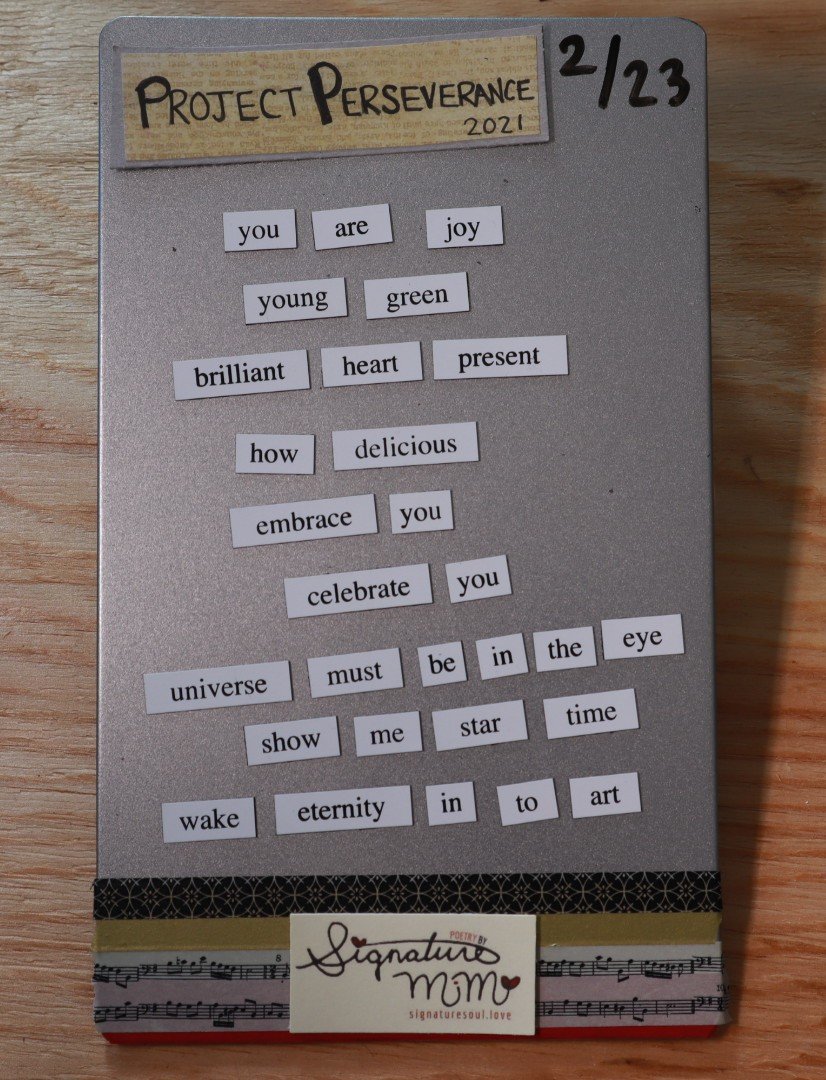 PROJECT PERSEVERANCE
2021
2/23
you are joy
young green
brilliant heart present
how delicious
embrace you
celebrate you
universe must be in the eye
show me star time
wake eternity in to art
POETRY BY
Signature
MiMi
signaturesoul.love
8
10